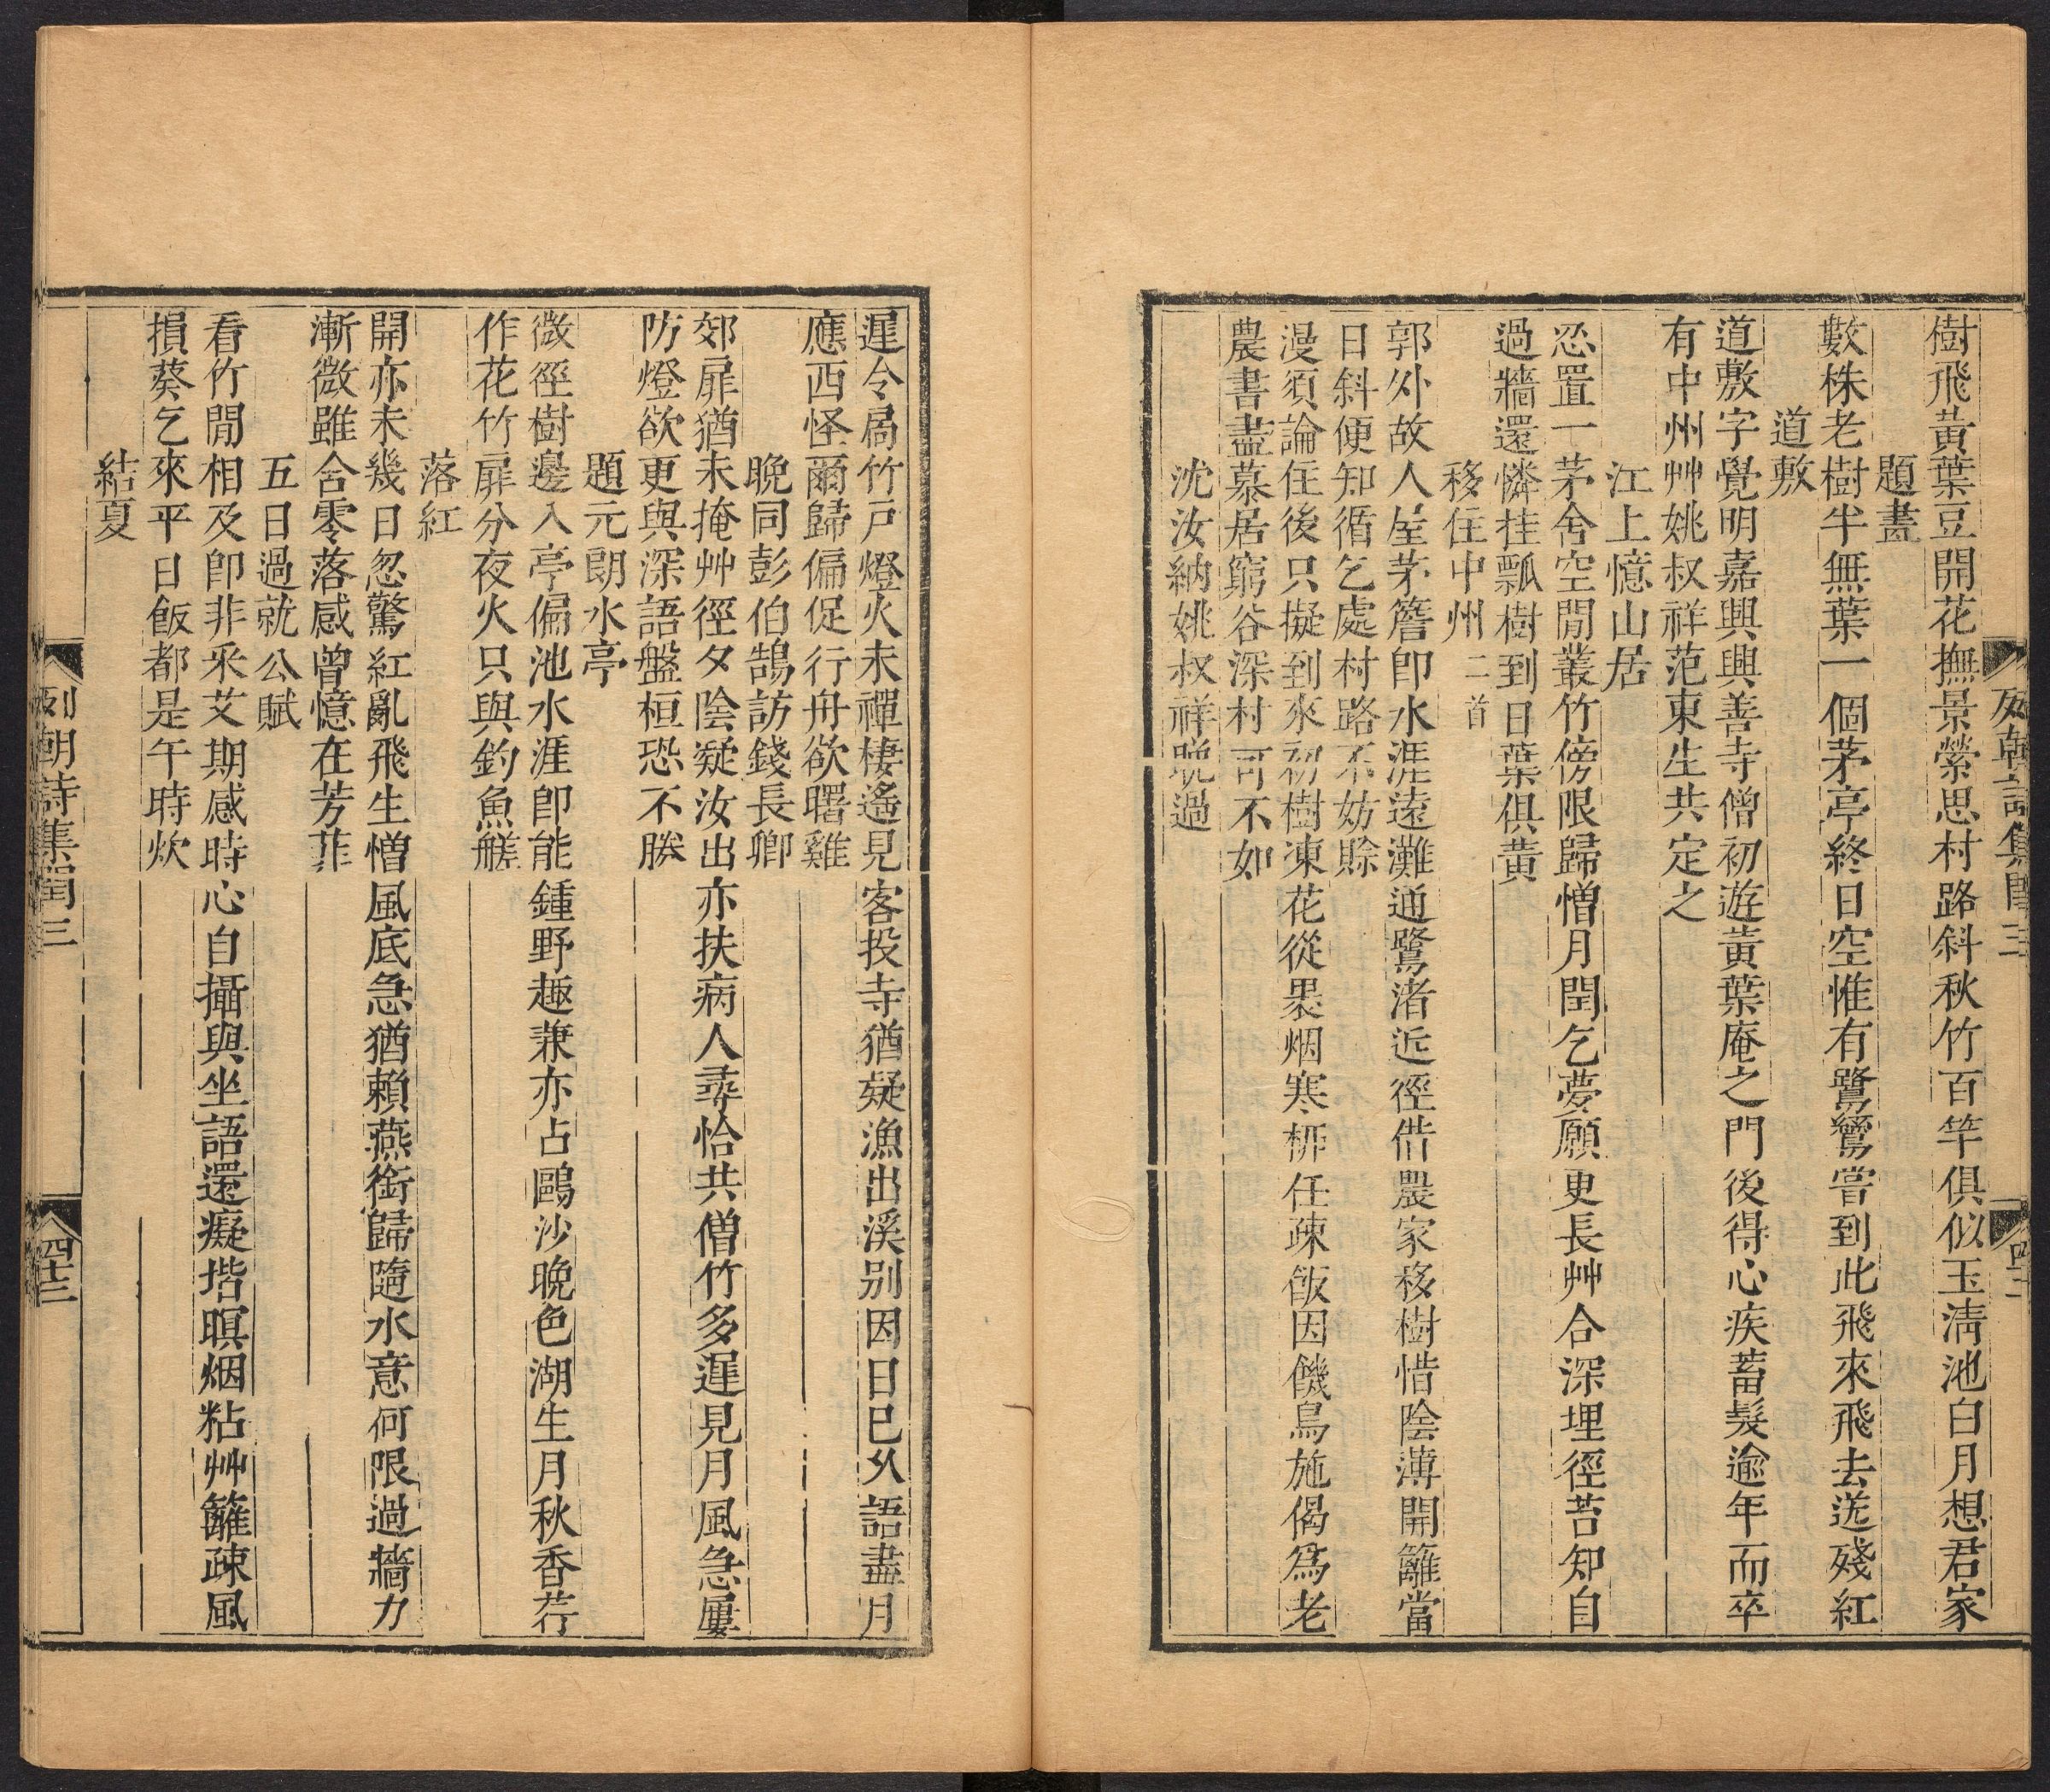 樹飛黃葉豆開花撫景縈思村路斜秋竹百竿俱似玉清池白月想君家
題畫
數株老樹半無葉一個茅亭終日空惟有鷺鶿嘗到此飛來飛去送殘紅
道敷
道敷字覺明嘉興興善寺僧初遊黃葉庵之門後得心疾蓄髮逾年而卒
有中州艸姚叔祥范東生共定之
江上憶山居
忍置一茅舍空閒叢竹傍限歸憎月閏乞夢願更長艸合深埋徑苔知自
過牆還憐桂瓢樹到日葉俱黃
移住中州二首
郭外故人屋茅簷卽水涯遠灘通鷺渚近徑借農家移樹惜陰薄開籬當
日斜便知循乞處村路不妨賒
漫須論住後只擬到來初樹凍花從褁烟寒栁任疎飯因饑鳥施偈爲老
農書盡慕居窮谷深村可不如
沈汝納姚叔祥晚過
列朝詩集閏三
四十二
遲令局竹戸燈火未禪棲遙見客投寺猶疑漁出溪别因日已久語盡月
應西怪爾歸偏促行舟欲曙雞
晚同彭伯鵠訪錢長卿
郊扉猶未掩艸徑夕陰疑汝出亦扶病人尋恰共僧竹多遲見月風急屢
防燈欲更與深語盤桓恐不勝
題元朗水亭
微徑樹邊入亭偏池水涯卽能鍾野趣兼亦占鷗沙晚色湖生月秋香荇
作花竹扉分夜火只與釣魚艖
落紅
開亦未幾日忽驚紅亂飛生憎風底急猶賴燕銜歸隨水意何限過牆力
漸微雖含零落感曾憶在芳菲
五日過就公賦
看竹閒相及卽非采艾期感時心自攝與坐語還癡堦暝烟粘艸籬疎風
損葵乞來平日飯都是午時炊
結夏
列朝詩集閏三
四十三